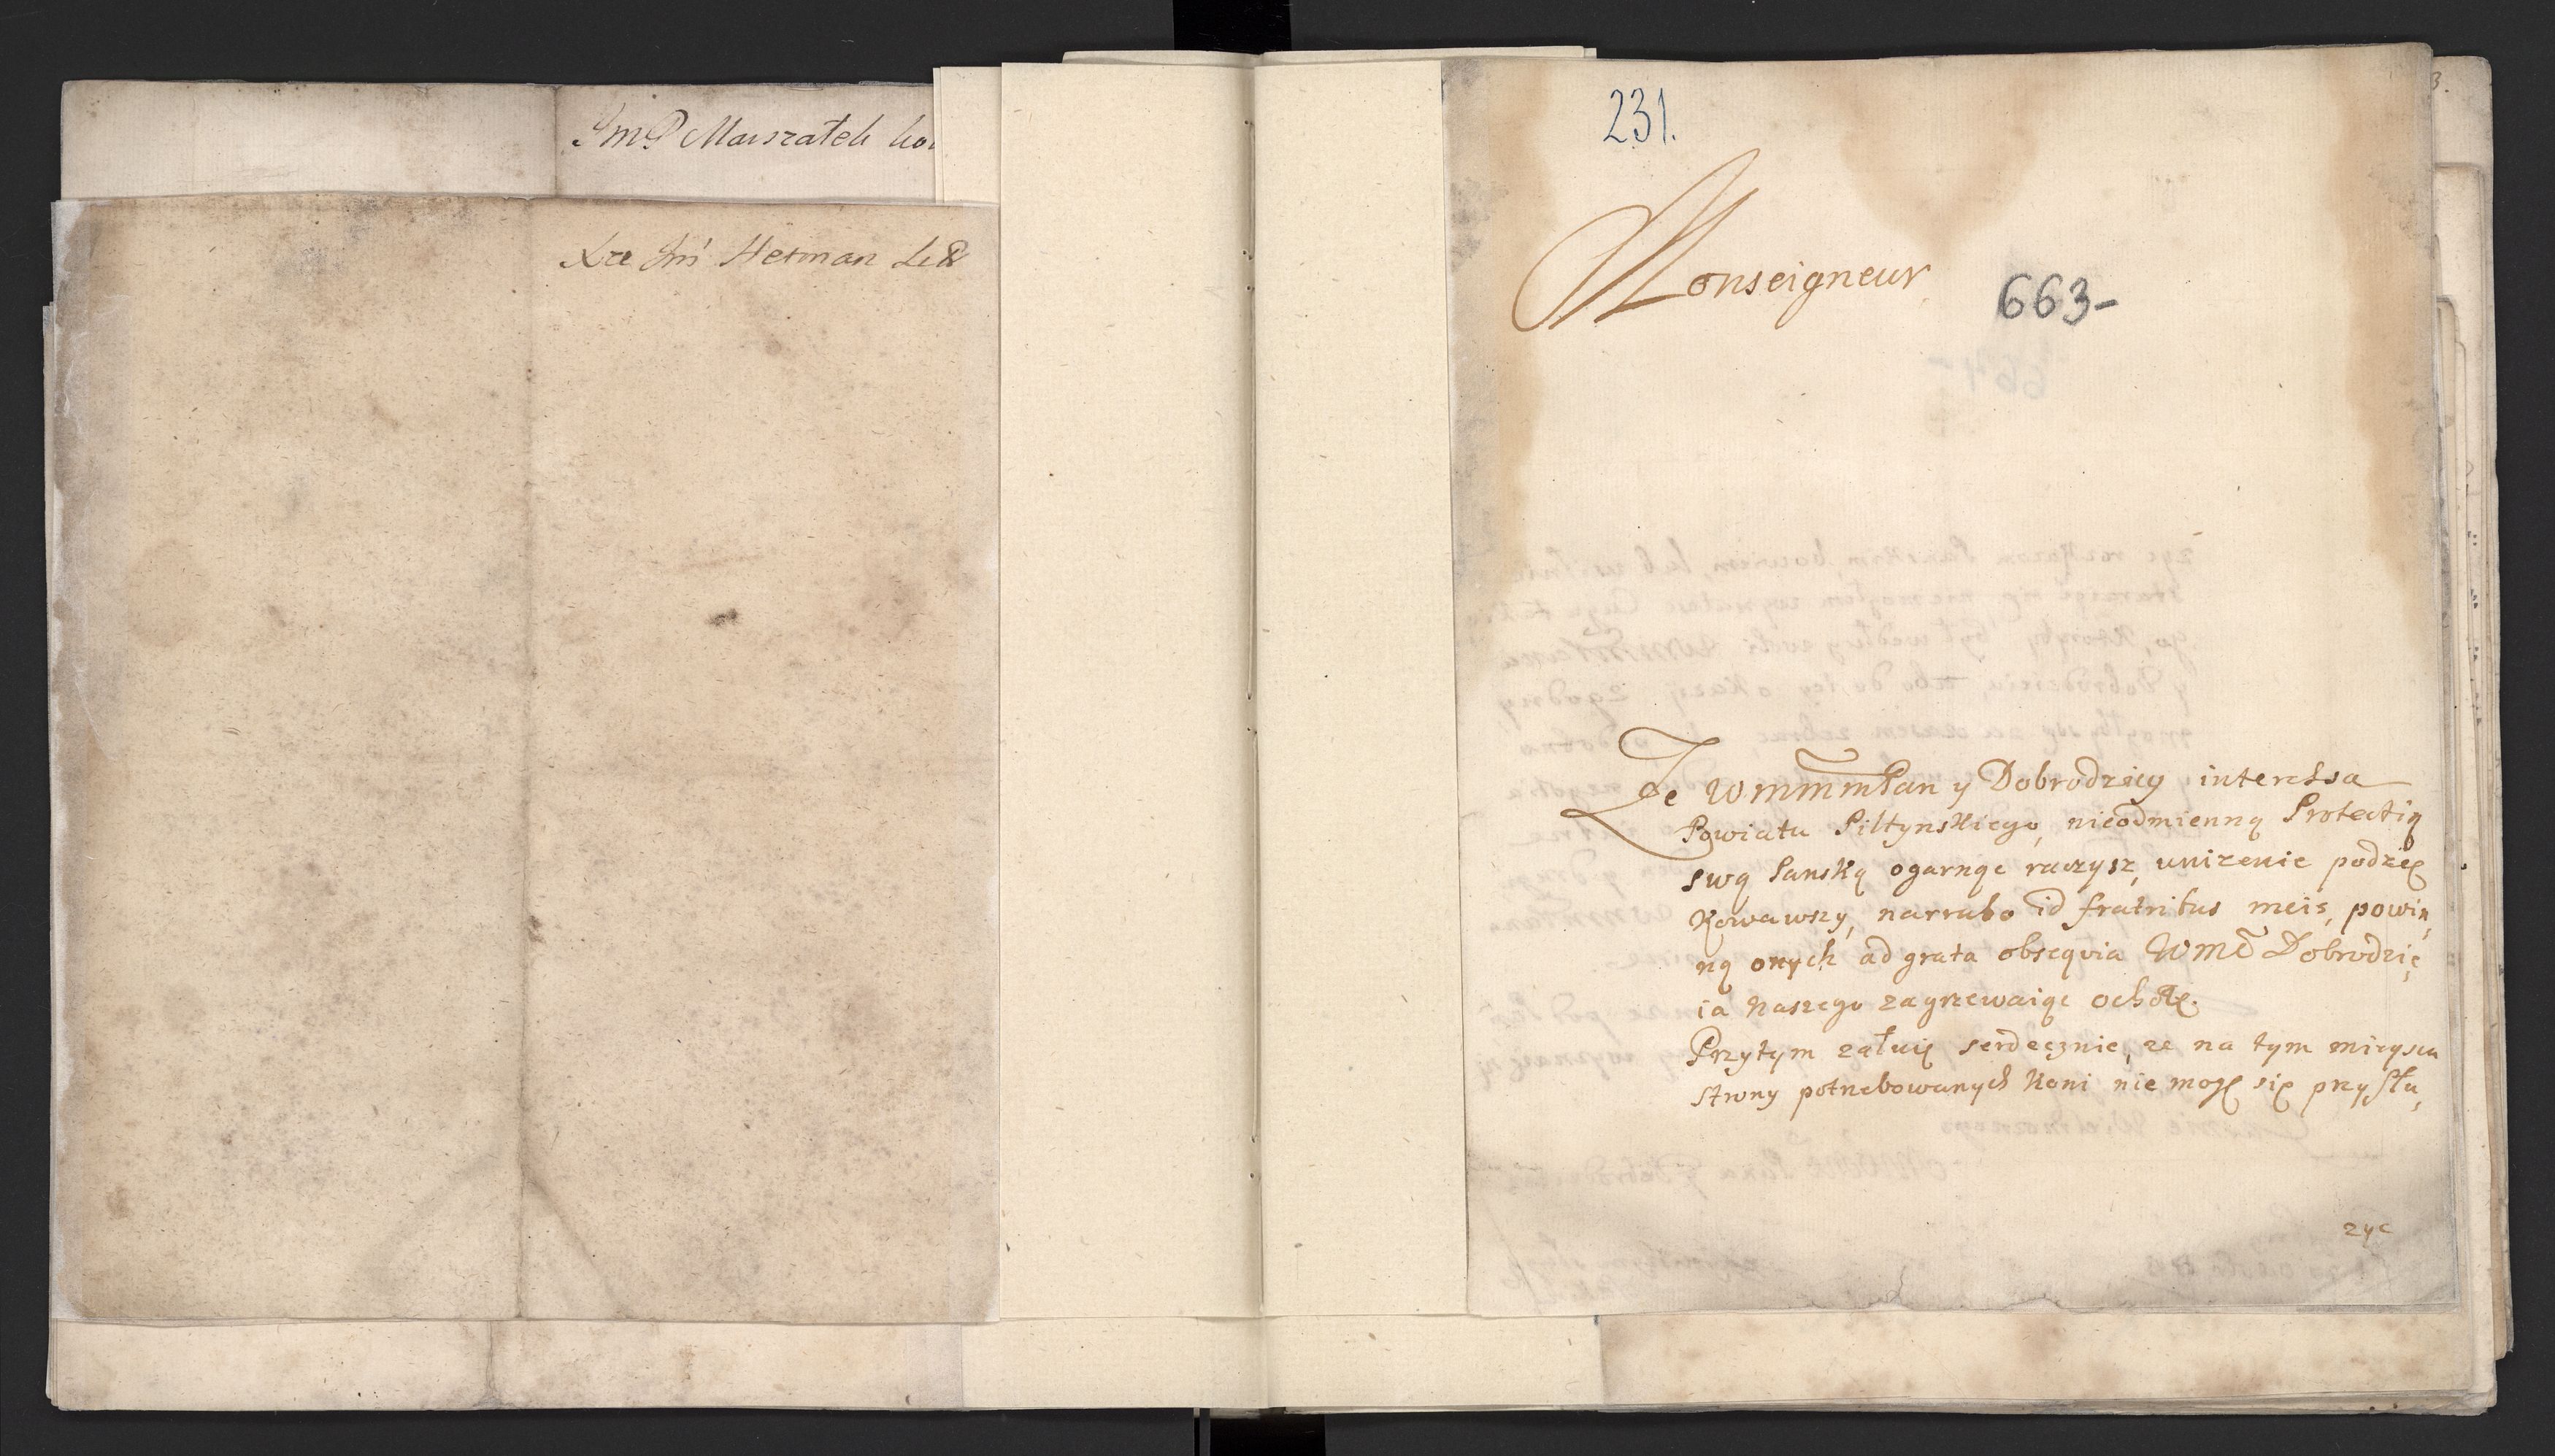 JmP Marszałek
Xże Jm Hetman
231.
Monseigneur
663-
Że WmmmPan y Dobrodziey interessa
Powiatu Piltynskiego, nieodmienną Protectią
swą Panską ogarnąc raczysz, unizenie podzię
kowawszy, narrabo id fratribus meis, powin,
ną onych ad grata obsequia WmC Dobrodzie,
ia Naszego zagrzewaiąc ochotę.
Przytym załuię serdecznie, ze na tym mieyscu
strony potrzebowanych Koni nie mogę się przysłu,
zyc